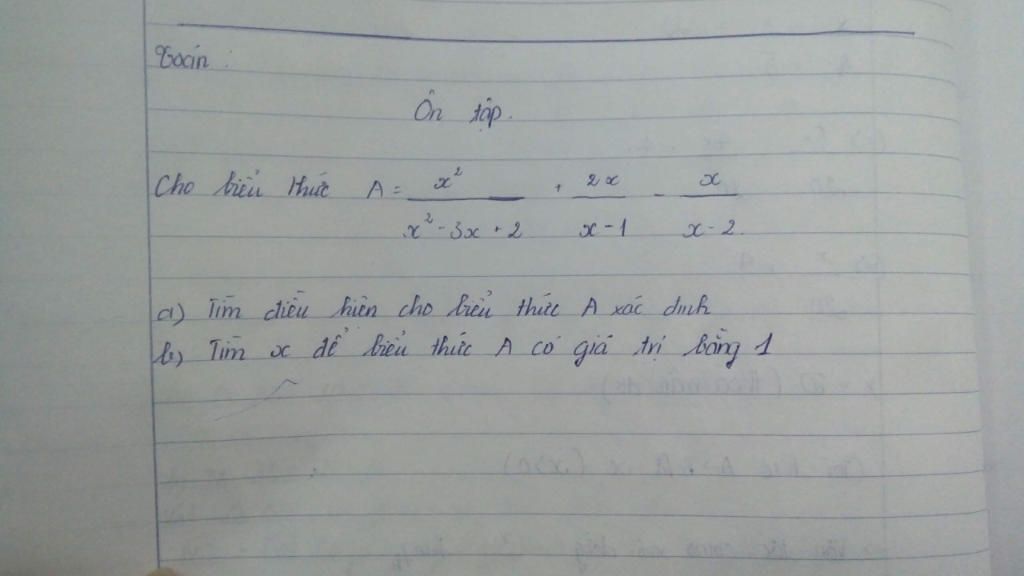 Toán :
Ôn tập.
Cho biểu thức A = x²/(x² - 3x + 2) + 2x/(x - 1) - x/(x - 2).
a) Tìm điều kiện cho biểu thức A xác định
b) Tìm x để biểu thức A có giá trị bằng 1